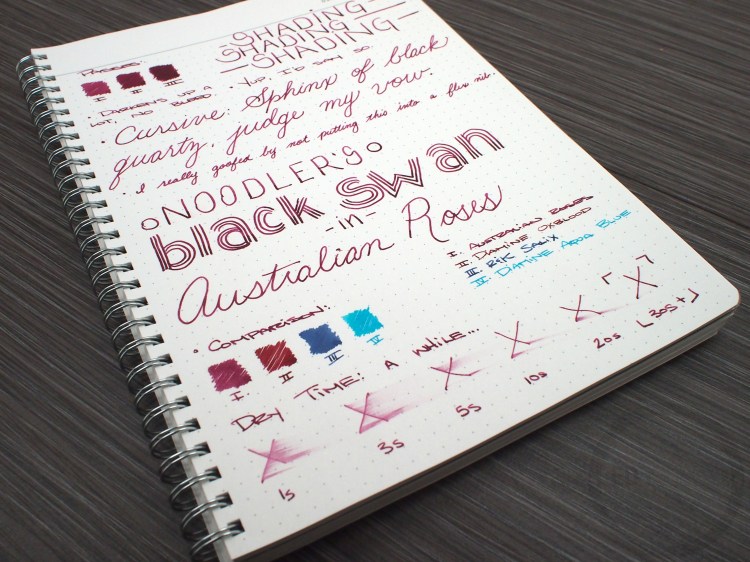 SHADING
SHADING
—SHADING—
PASSES:
I II III
• YUP, I'D SAY SO.
• DARKENS UP A
LOT, NO BLEED.
• Cursive: Sphinx of black
quartz, judge my vow.
• I really goofed by not putting this into a flex nib.
NOODLER'S
black swan
-in-
Australian Roses
I. AUSTRALIAN ROSES
II. DIAMINE OXBLOOD
III. R&K SALIX
IV. DIAMINE AQUA BLUE
• COMPARISON:
I II III IV
DRY TIME: A WHILE...
1s 3s 5s 10s 20s [30s+]